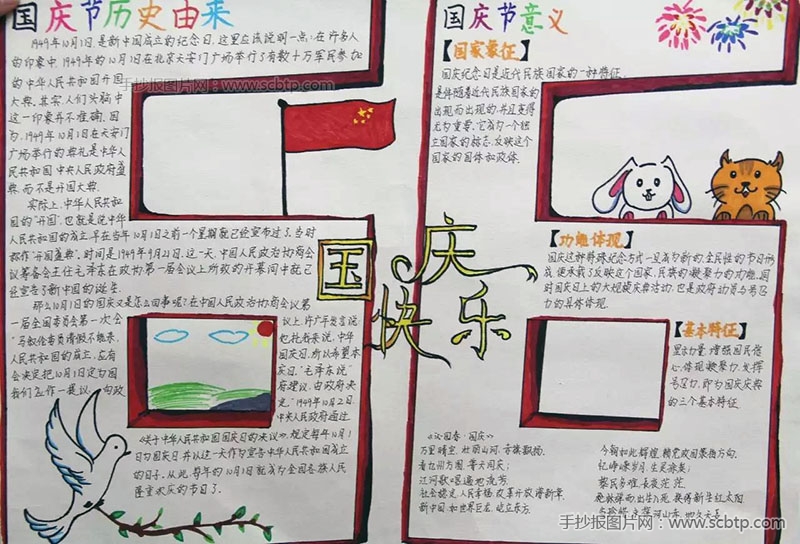 国庆节历史由来
1949年10月1日是新中国成立的纪念日,这里应该说明一点:在许多人
的印象中,1949年的10月1日在北京天安门广场举行了有数十万军民参加
的中华人民共和国开国
大典。其实,人们头脑中
这一印象并不准确。因
为,1949年10月1日在天安门
广场举行的典礼是中华人
民共和国中央人民政府盛
典,而不是开国大典。
实际上,中华人民共和
国的“开国”,也就是说中华
人民共和国的成立,早在当年10月1日之前一个星期就已经宣布过了。当时
都作“开国盛典”。时间是1949年9月21日。这一天,中国人民政治协商会议
筹备会主任毛泽东在政协第一届会议上所致的开幕词中就已
经宣告了新中国的诞生。
那么10月1日的国庆又是怎么回事呢?在中国人民政治协商会议第
一届全国委员会第一次会
议上,许广平发言说
“马叙伦委员请假不能来,
他托我来说,中华
人民共和国的成立,应有
国庆日,所以希望本
会决定把10月1日定为国
庆日。”毛泽东说
我们应作一提议,向政
府建议,由政府决
定。”1949年10月2日,
中央人民政府通过
《关于中华人民共和国国庆日的决议》,规定每年10月1
日为国庆日,并以这一天作为宣告中华人民共和国成立
的日子。从此,每年的10月1日就成为全国各族人民
隆重欢庆的节日了。
国庆快乐
国庆节意义
【国家象征】
国庆纪念日是近代民族国家的一种特征,
是伴随着近代民族国家的
出现而出现的,并且变得
尤为重要。它成为一个独
立国家的标志,反映这个
国家的国体和政体。
【功能体现】
国庆这种特殊纪念方式一旦成为新的、全民性的节日形
式,便承载了反映这个国家、民族的凝聚力的功能。同
时国庆日上的大规模庆典活动,也是政府动员与号召力
的具体体现。
【基本特征】
显示力量、增强国民信
心,体现凝聚力,发挥
号召力,即为国庆庆典
的三个基本特征
《沁园春·国庆》
万里晴空,壮丽山河,
看九州方圆,普天同庆;
江河歌唱
社会稳定,人民幸福,改革开放谱新章
新中国,如世界巨龙,屹立东方。
今朝如此辉煌,
忆峥嵘岁月,生灵涂炭;
黎民多难,长夜茫茫
换得新生红太阳
手抄报图片网:www.scbtp.com
手抄报图片网:www.scbtp.com